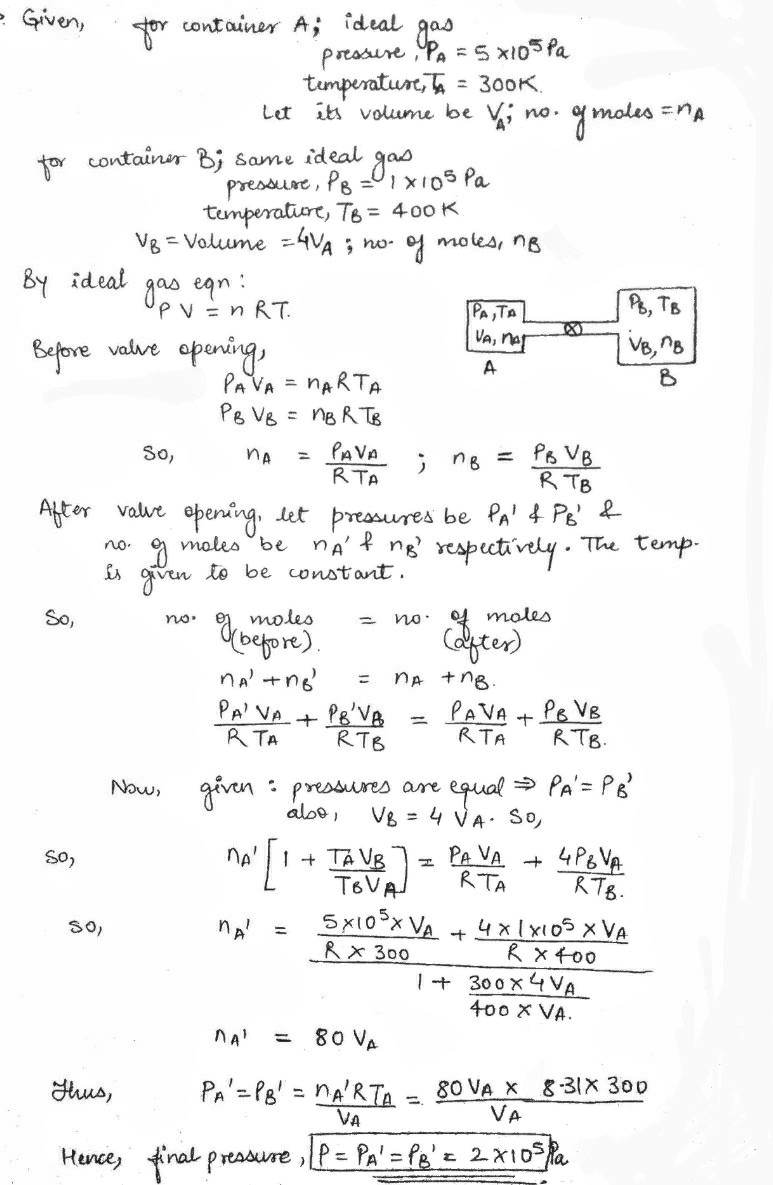 Given, for container A; ideal gas
pressure, PA = 5 x10⁵ Pa
temperature, TA = 300K.
Let its volume be VA; no. of moles = nA
for container B; same ideal gas
pressure, PB = 1 x 10⁵ Pa
temperature, TB = 400 K
VB = Volume = 4VA ; no. of moles, nB
By ideal gas eqn :
P V = n RT.
PA, TA
VA, nA
A
PB, TB
VB, nB
B
Before valve opening,
PA VA = nA R TA
PB VB = nB R TB
So, nA = PA VA / R TA ; nB = PB VB / R TB
After valve opening, let pressures be PA' & PB' &
no. of moles be nA' & nB' respectively. The temp.
is given to be constant.
So, no. of moles = no. of moles
(before). (after)
nA' + nB' = nA + nB.
PA' VA / R TA + PB' VB / R TB = PA VA / R TA + PB VB / R TB.
Now, given : pressures are equal ⇒ PA' = PB'
also, VB = 4 VA. So,
So, nA' [1 + TA VB / TB VA] = PA VA / R TA + 4 PB VA / R TB.
so, nA' = (5x10⁵ x VA / R x 300 + 4 x 1 x10⁵ x VA / R x 400) / (1 + 300 x 4 VA / 400 x VA.)
nA' = 80 VA
Thus, PA' = PB' = nA' R TA / VA = 80 VA x 8.31 x 300 / VA
Hence, final pressure, P = PA' = PB' = 2 x10⁵ Pa